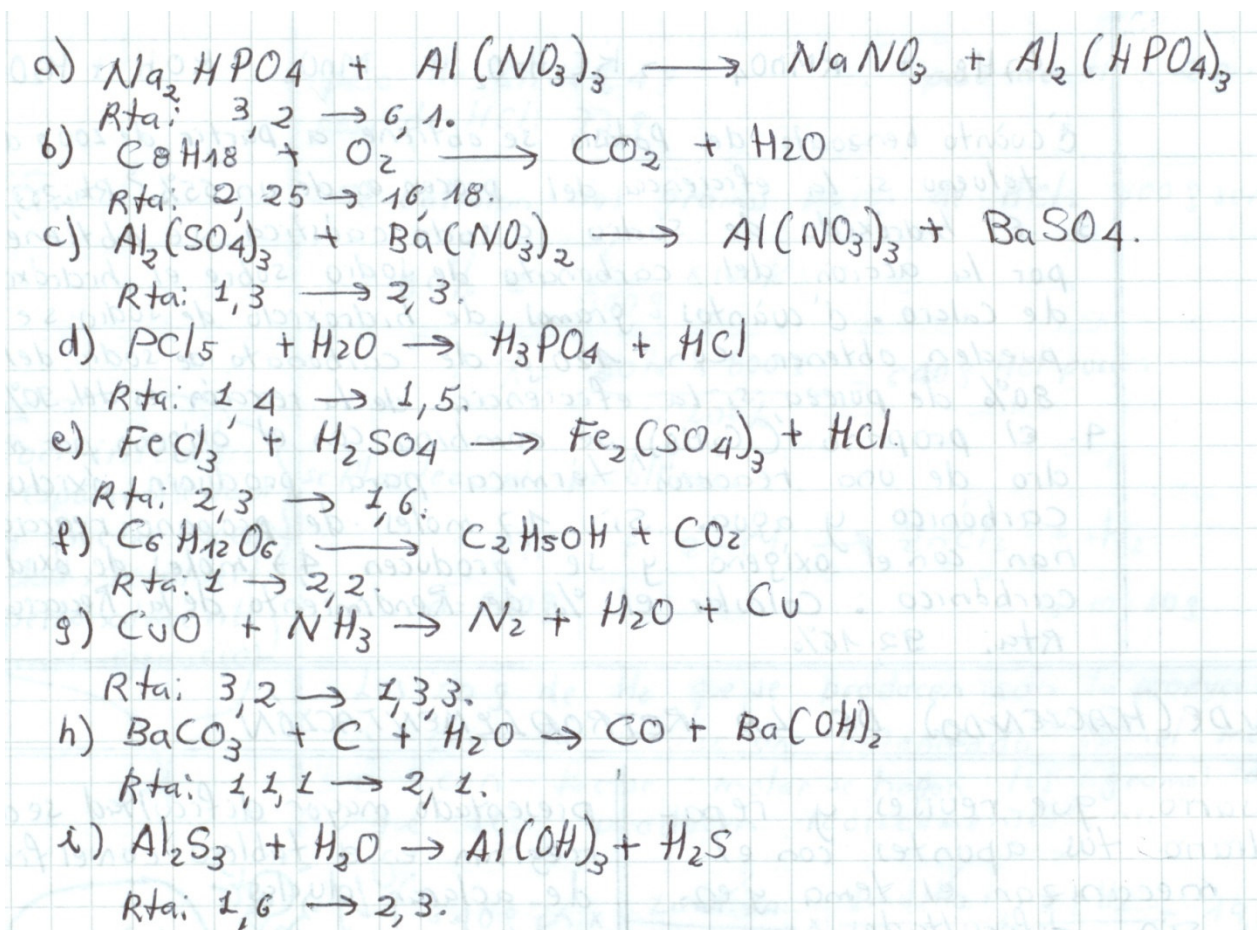 a) Na₂HPO4 + Al(NO₃)₃ → NaNO₃ + Al₂(HPO₄)₃
Rta: 3,2 → 6,1.
b) C8H18 + O₂ → CO₂ + H2O
Rta: 2,25 → 16,18.
c) Al₂(SO4)₃ + Ba(NO₃)₂ → Al(NO₃)₃ + BaSO4.
Rta: 1,3 → 2,3.
d) PCl5 + H2O → H₃PO₄ + HCl
Rta: 1,4 → 1,5.
e) FeCl₃ + H₂SO4 → Fe₂(SO4)₃ + HCl.
Rta: 2,3 → 1,6.
f) C6H12O6 → C2H5OH + CO₂
Rta: 1 → 2,2
g) CuO + NH₃ → N₂ + H₂O + Cu
Rta: 3,2 → 1,3,3.
h) BaCO₃ + C + H₂O → CO + Ba(OH)₂
Rta: 1,1,1 → 2,1.
i) Al₂S₃ + H₂O → Al(OH)₃ + H₂S
Rta: 1,6 → 2,3.